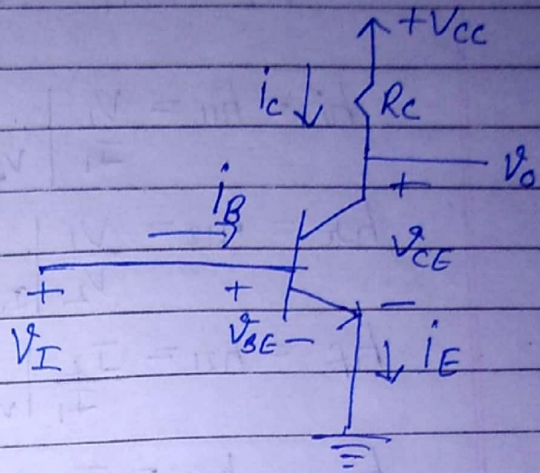 +Vcc
ic Rc
vo
+
iB
vCE
+ +
vBE - -
VI
iE